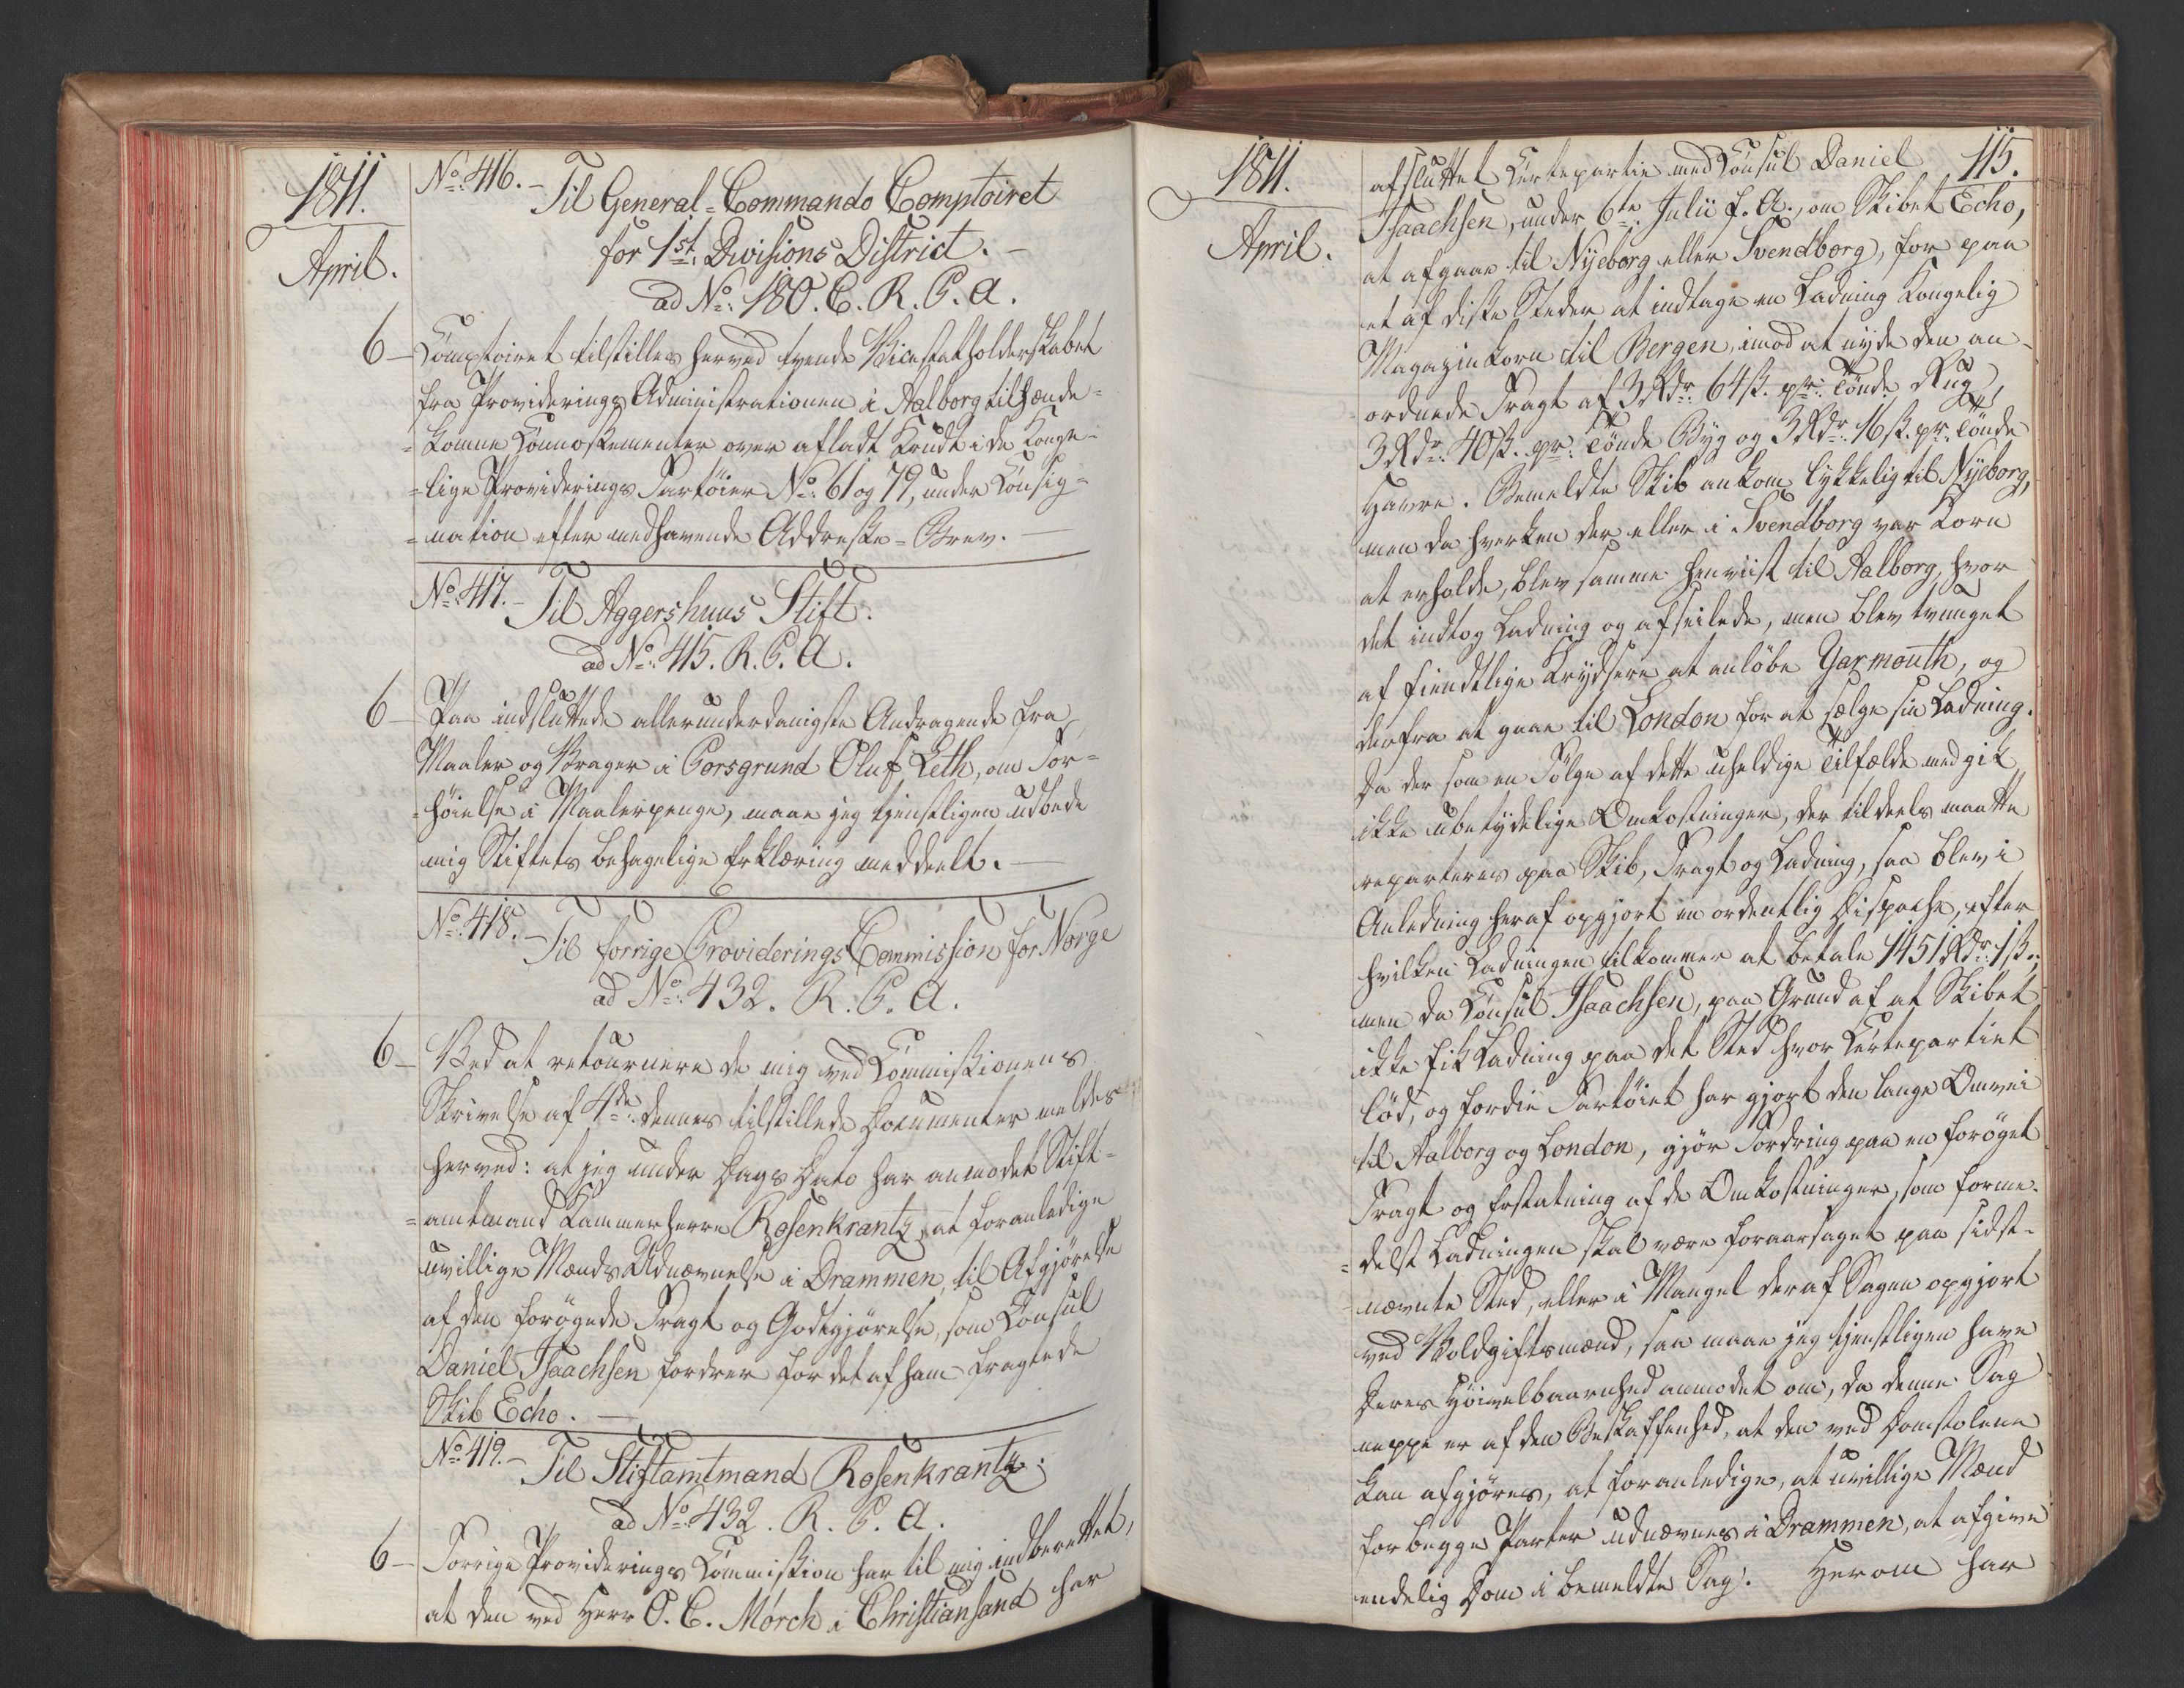 1811.
April.
No: 416. - Til General-Commando Comptoiret
for 1st: Divisions District. -
ad No: 180. C. R. P. A.
6 - Comptoiret tilstilles herved tvende Vicestatholderskabet
fra Provideringsadministrationen i Aalborg tilhænde-
=komne Connossementer over afladt Krudt i de Konge-
=lige Provideringsfartöier No: 61 og 79, under Consig-
=nation efter medhavende Addresse-Brev. -
No: 417. - Til Aggershuus Stift.
ad No: 415. R. P. A.
6 - Paa indsluttede allerunderdanigste Andragende fra
Maaler og Vrager i Porsgrund Oluf Leth, om For-
=höielse i Maalerpenge, maae jeg tjenstligen udbede
mig Stiftets behagelige Erklæring meddeelt. -
No: 418. - Til forrige Providerings Commission for Norge
ad No: 432. R. P. A.
6 - Ved at retournere de mig ved Commissionens
Skrivelse af 4de: dennes tilstillede Documenter meldes
herved: at jeg under Dags Dato har anmodet Stift-
=amtmand Kammerherre Rosenkrantz, at foranledige
uvillige Mænds Udnævnelse i Drammen, til Afgjörelse
af den forögede Fragt og Godtgjörelse, som Consul
Daniel Isaachsen fordrer for det af ham fragtede
Skib Echo. -
No: 419. - Til Stiftamtmand Rosenkrantz.
ad No: 432. R. P. A.
6 - Forrige Providerings Commission har til mig indberettet,
at den ved Herr O. C. Mörch i Christiansand har
1811.
April.
115.
afsluttet Certepartie med Consul Daniel
Isaachsen, under 6te: Julii f. A., om Skibet Echo,
at afgaae til Nyeborg eller Svendborg, for paa
et af disse Steder at indtage en Ladning Kongelig
Magazinkorn til Bergen, imod at nyde den an-
ordnede Fragt af 3 Rdr: 64 ß. pr: Tönde Rug,
3 Rdr: 40 ß. pr: Tönde Byg og 3 Rdr: 16 ß. pr: Tönde
Havre. Bemeldte Skib ankom lykkelig til Nyeborg,
men da hverken der eller i Svendborg var Korn
at erholde, blev samme henviist til Aalborg, hvor
det indtog Ladning og afseilede, men blev tvunget
af fiendtlige Krydsere at anlöbe Yarmouth, og
derfra at gaae til London for at sælge sin Ladning.
Da der som en Fölge af dette uheldige Tilfælde medgik
ikke ubetydelige Omkostninger, der tildeels maatte
reparteres paa Skib, Fragt og Ladning, saa blev i
Anledning heraf opgjort en ordentlig Dispache, efter
hvilken Ladningen tilkommer at betale 1451 Rdr: 1 ß.;
men da Consul Isaachsen, paa Grund af at Skibet
ikke fik Ladning paa det Sted hvor Certepartiet
löd, og fordie Fartöiet har gjort den lange Omvei
til Aalborg og London, gjör Fordring paa en foröget
Fragt og Erstatning af de Omkostninger, som forme-
=delst Ladningen skal være foraarsaget paa sidst-
nævnte Sted, eller i Mangel deraf Sagen opgjort
ved Voldgiftsmænd, saa maae jeg tjenstligen have
Deres Höivelbaarenhed anmodet om, da denne Sag
neppe er af den Beskaffenhed, at den ved Domstolene
kan afgjöres, at foranledige, at uvillige Mænd
for begge Parter udnævnes i Drammen, at afgive
endelig Dom i bemeldte Sag. Herom har